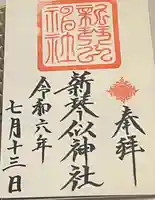 奉拝
新琴似神社
令和六年
七月十三日